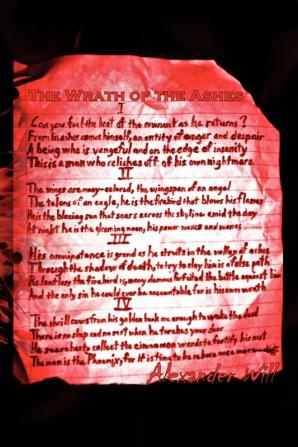 The Wrath of the Ashes
I
Can you feel the heat of the remnant as he returns?
From his ashes comes himself, an entity of anger and despair
A being who is vengeful and on the edge of insanity
This is a man who relishes off of his own nightmare
II
The wings are many-colored, the wingspan of an angel
The talons of an eagle, he is the firebird that blows his flames
He is the blazing sun that soars across the skyline amid the day
At night he is the gloaming moon, his power waxes and wanes
III
His omnipotence is grand as he struts in the valley of ashes
Through the shadow of death, to try to slay him is a false path
Relentless the firebird is, many damned for the battle against him
And the only sin he could ever be accountable for is his own wrath
IV
The shrill caws from his golden beak are enough to wake the dead
There is no sleep and no rest when he torches your door
He searches to collect the cinnamon wands to fortify his nest
The man is the Phoenix, for it is time to be reborn once more
Alexander Will